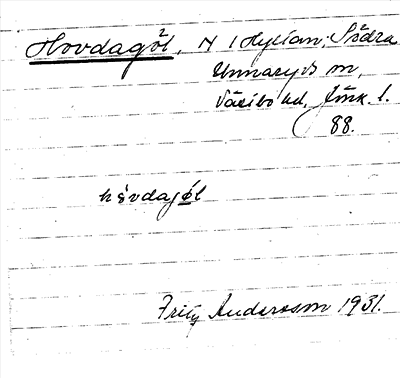 Hovdagöl, N i Hyltan, Södra
Unnaryds sn,
Västbo hd, Jönk. l.
88.
hövdagöl
Fritz Andersson 1931.